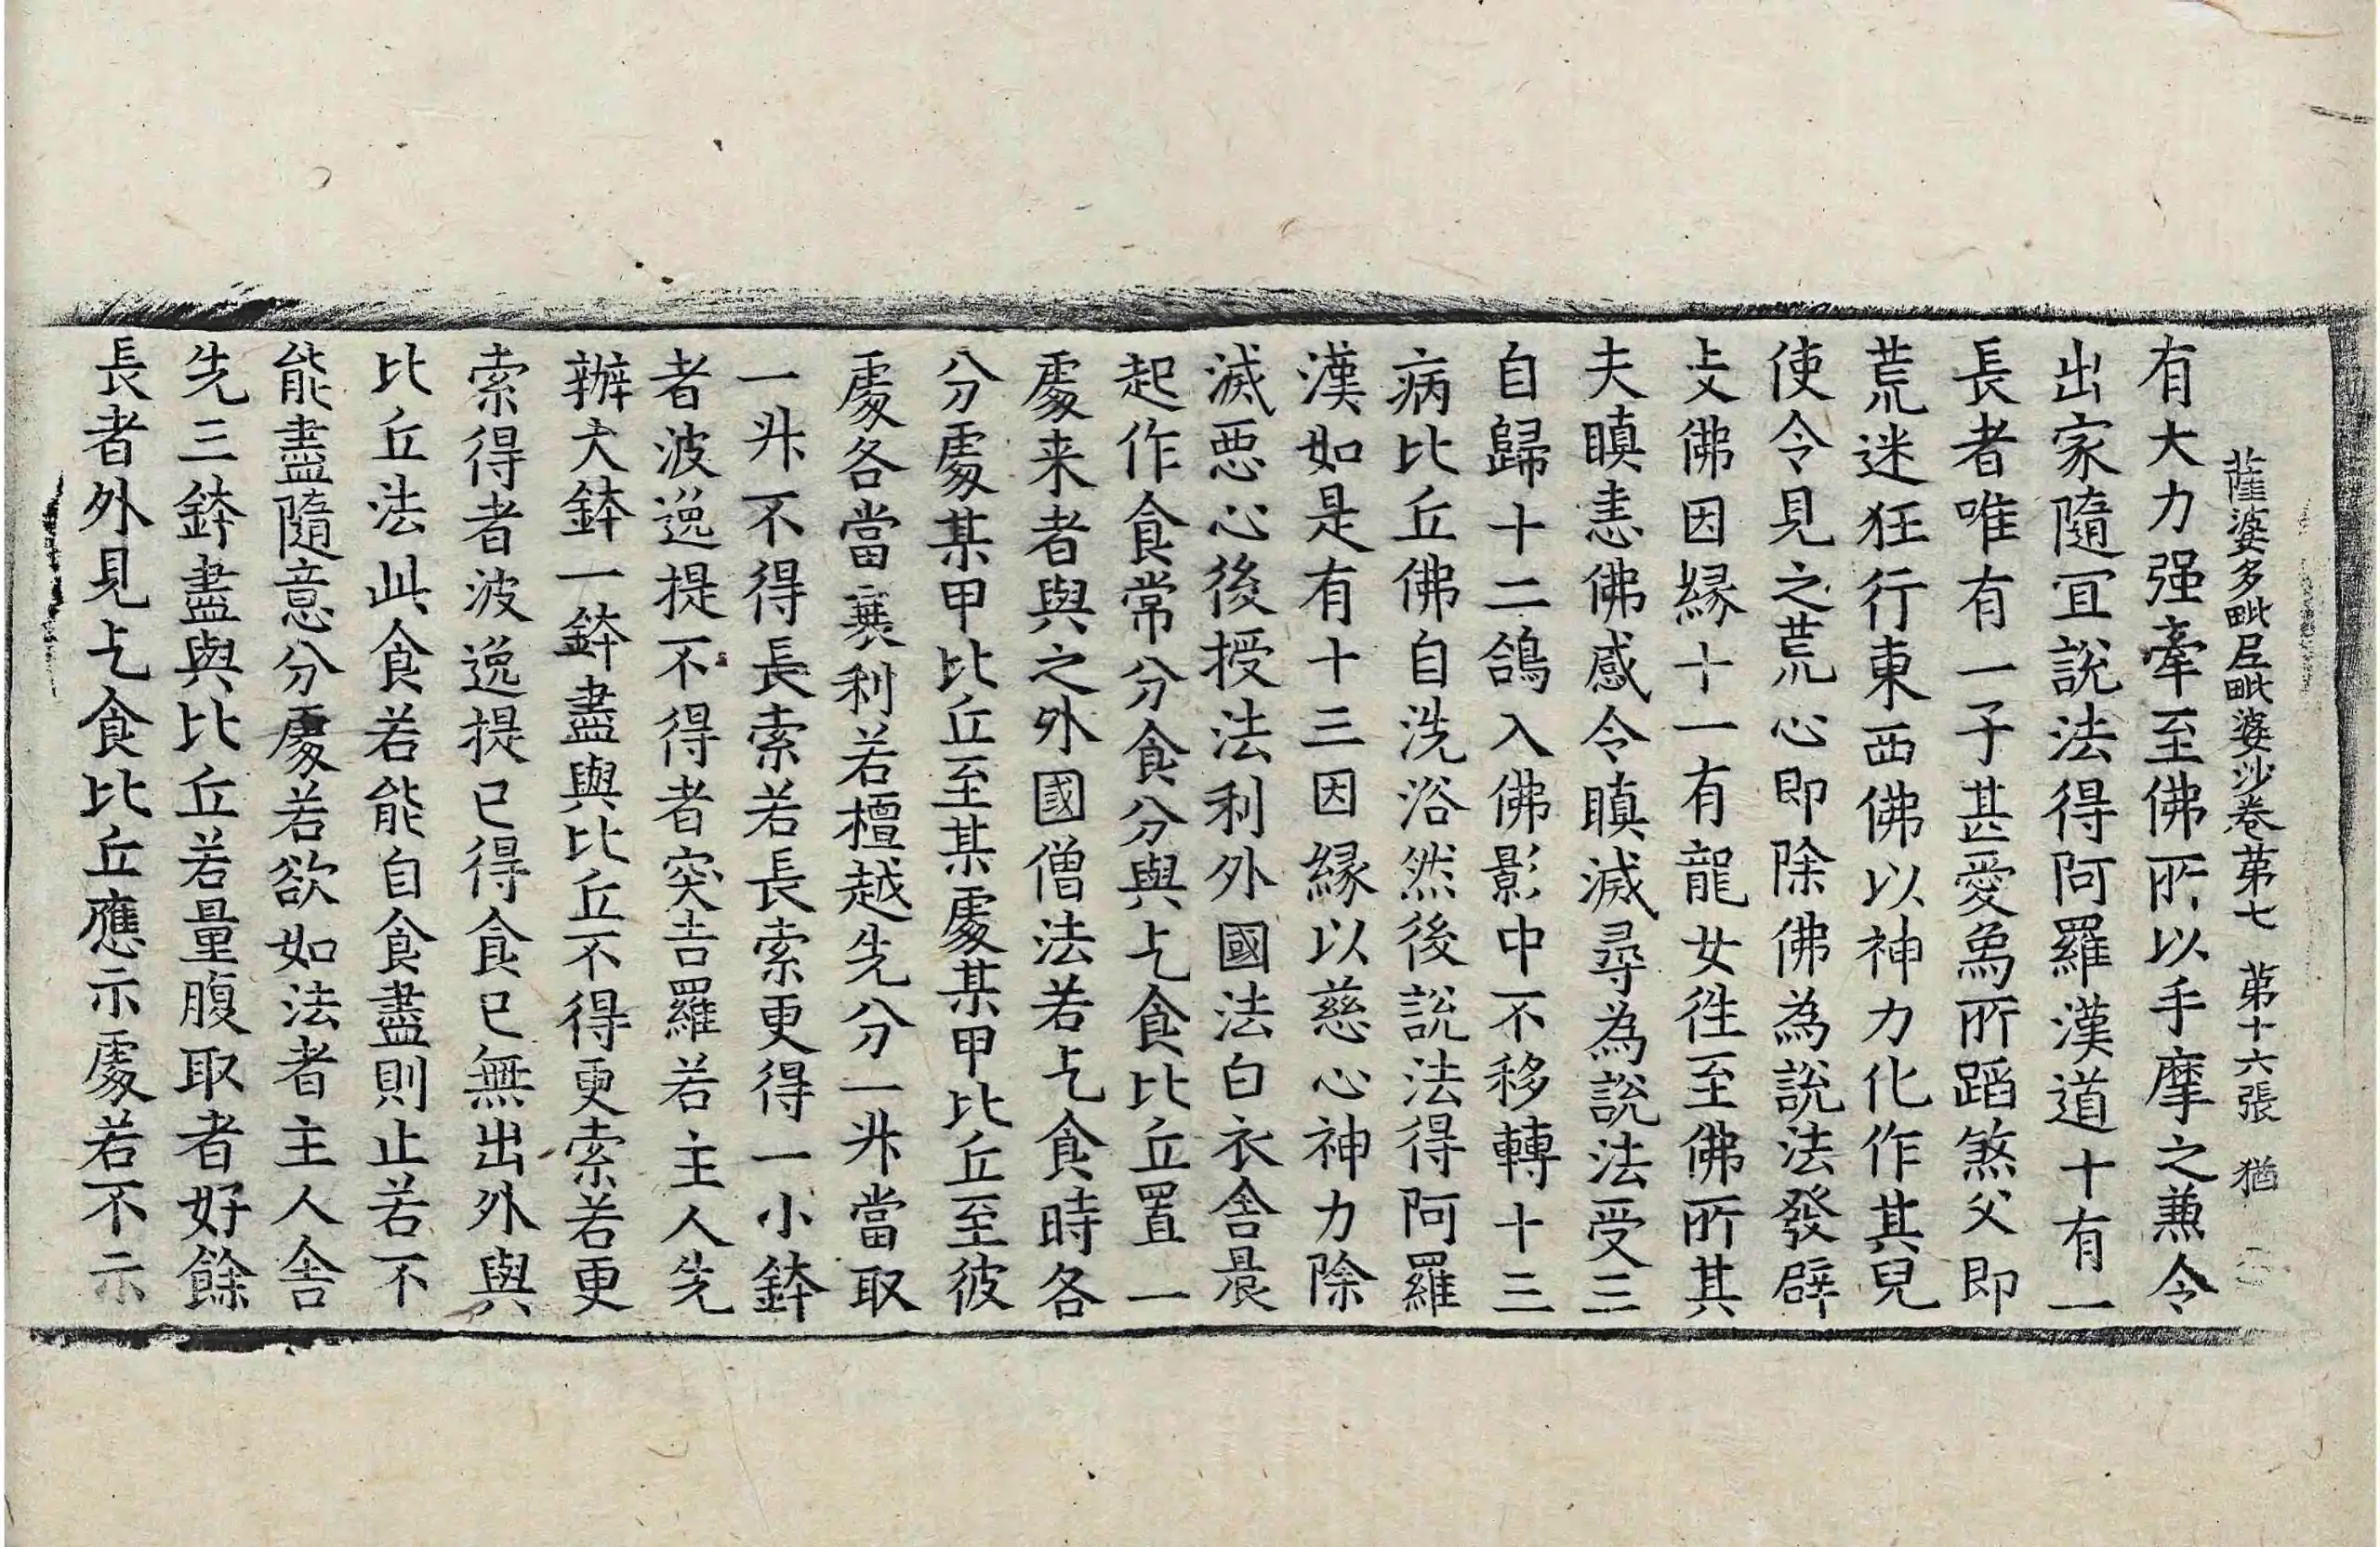 薩婆多毗尼毗婆沙卷苐七　苐十六張　猶
有大力强牽至佛所以手摩之兼令
出家隨冝說法得阿羅漢道十有一
長者唯有一子甚愛爲所蹈煞父即
荒迷狂行東西佛以神力化作其兒
使令見之荒心即除佛為說法發辟
支佛因緣十一有龍女徃至佛所其
夫瞋恚佛感令瞋滅尋為說法受三
自歸十二鴿入佛影中不移轉十三
病比丘佛自洗浴然後說法得阿羅
漢如是有十三因緣以慈心神力除
滅惡心後授法利外國法白衣舎晨
起作食常分食分與乞食比丘置一
處来者與之外國僧法若乞食時各
分處某甲比丘至某處某甲比丘至彼
處各當蘘利若檀越先分一升當取
一升不得長索若長索更得一小鉢
者波逸提不得者突吉羅若主人先
辦大鉢一鉢盡與比丘不得更索若更
索得者波逸提已得食已無出外與
比丘法此食若能自食盡則止若不
能盡隨意分處若欲如法者主人舎
先三鉢盡與比丘若量腹取者好餘
長者外見乞食比丘應示處若不示